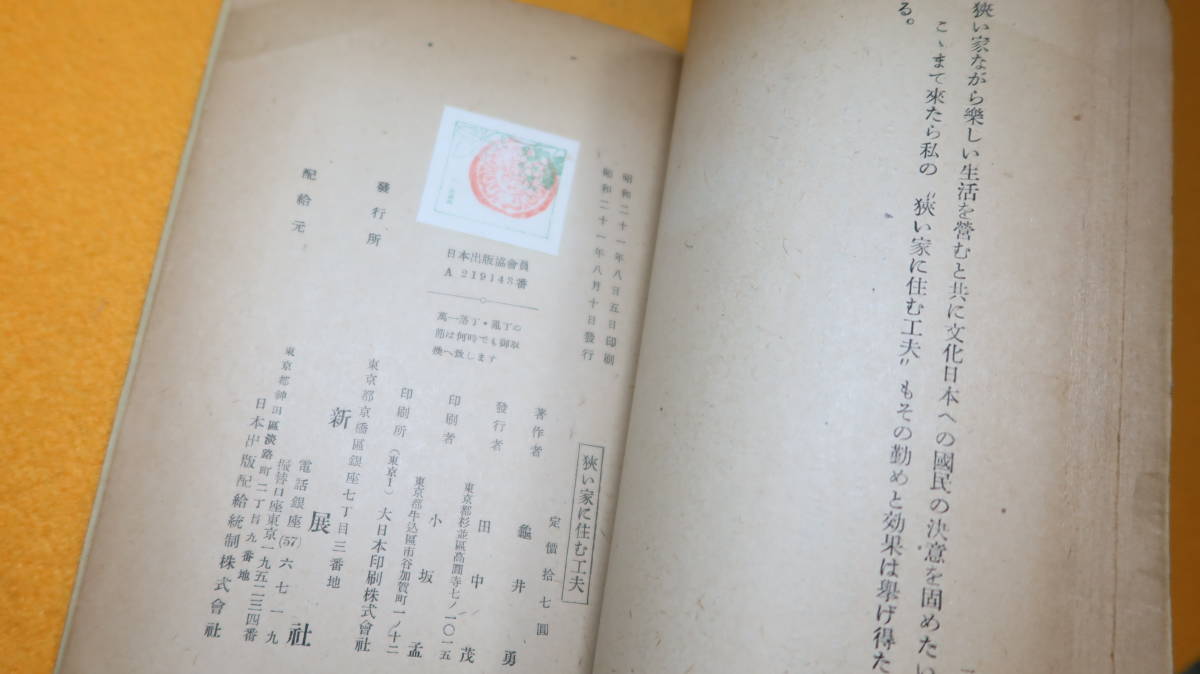 狹い家ながら樂しい生活を營むと共に文化日本への國民の決意を固めたい
こゝまで來たら私の〝狹い家に住む工夫〟もその勤めと効果は擧げ得た
る。
昭和二十一年八月五日印刷
昭和二十一年八月十日發行
狹い家に住む工夫
定價拾七圓
著作者 龜井勇
東京都杉並區高圓寺七ノ一〇一五
發行者 田中茂
東京都牛込區市谷加賀町一ノ十二
印刷者 小坂孟
印刷所 (東京1) 大日本印刷株式會社
日本出版協會員
A 219148番
萬一落丁・亂丁の
節は何時でも御取
換へ致します
東京都京橋區銀座七丁目三番地
發行所 新展社
電話銀座(57)六七一九
振替口座東京一九五二三四番
東京都神田區淡路町二丁目九番地
配給元 日本出版配給統制株式會社